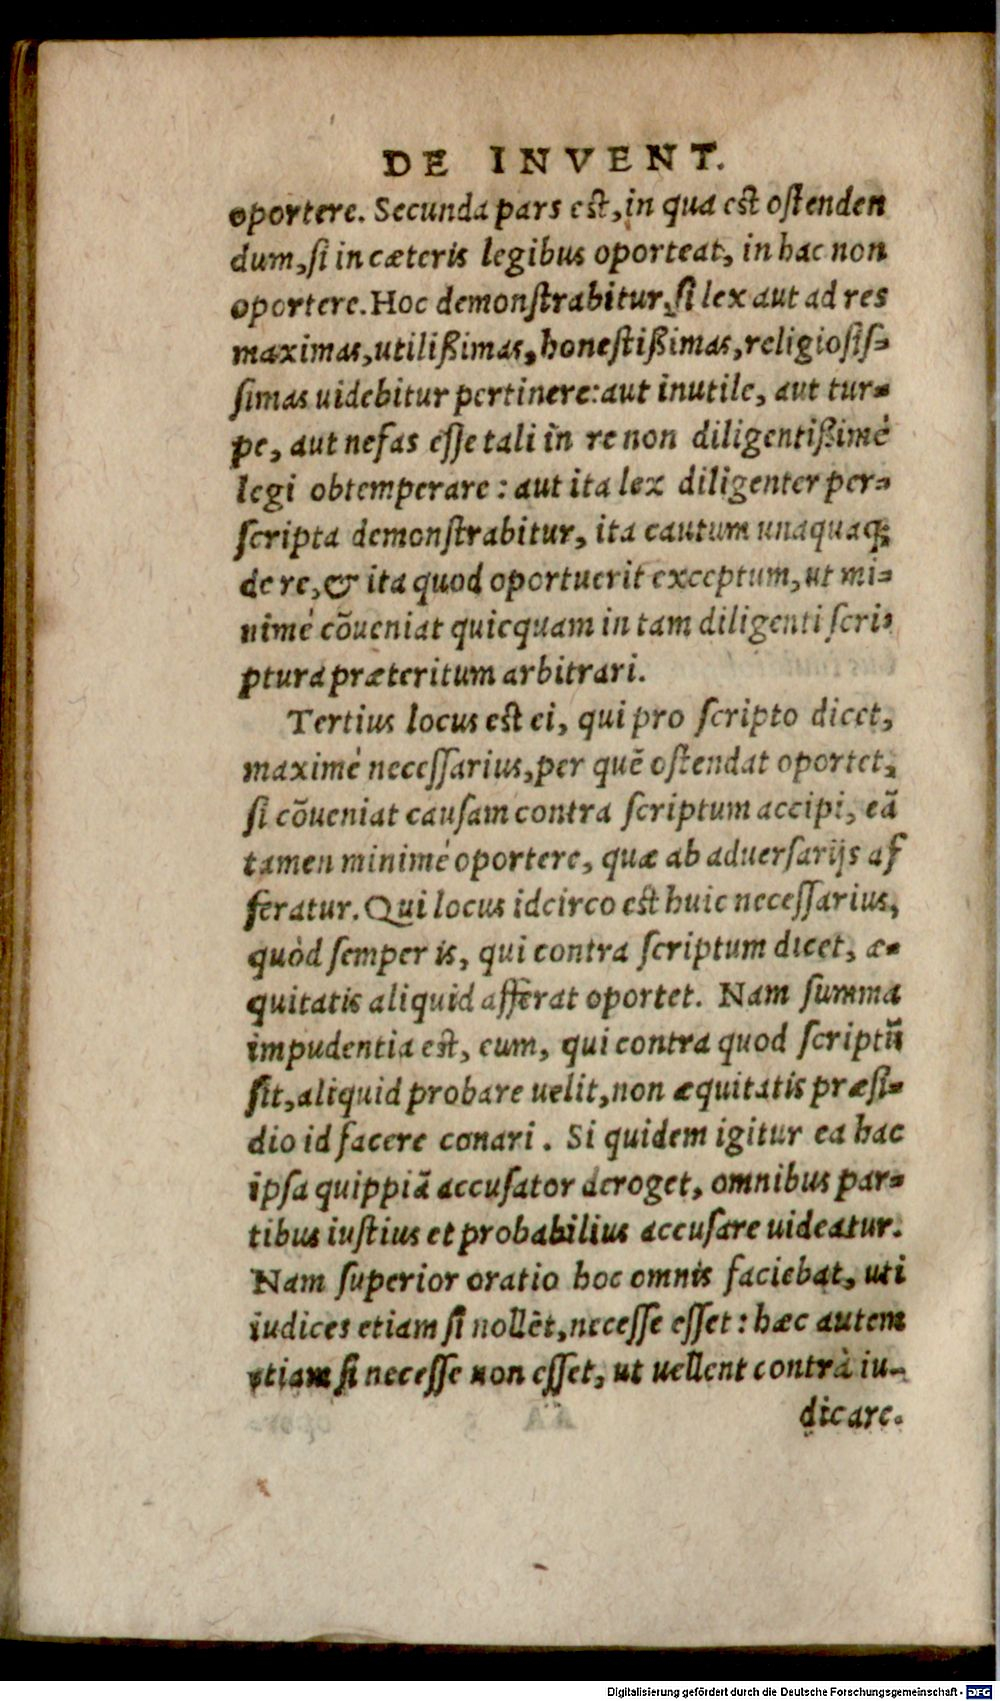 DE INVENT.
oportere. Secunda pars est, in qua est ostenden
dum, si in cæteris legibus oporteat, in hac non
oportere. Hoc demonstrabitur, si lex aut ad res
maximas, utilißimas, honestißimas, religiosis-
simas uidebitur pertinere: aut inutile, aut tur-
pe, aut nefas esse tali in re non diligentißimè
legi obtemperare: aut ita lex diligenter per-
scripta demonstrabitur, ita cautum unaquaq;
de re, & ita quod oportuerit exceptum, ut mi-
nimè cõueniat quicquam in tam diligenti scri-
ptura præteritum arbitrari.
Tertius locus est ei, qui pro scripto dicet,
maximè necessarius, per quẽ ostendat oportet,
si cõueniat causam contra scriptum accipi, eã
tamen minimè oportere, quæ ab aduersarijs af
feratur. Qui locus idcirco est huic necessarius,
quòd semper is, qui contra scriptum dicet, æ-
quitatis aliquid afferat oportet. Nam summa
impudentia est, eum, qui contra quod scriptũ
sit, aliquid probare uelit, non æquitatis præsi-
dio id facere conari. Si quidem igitur ea hac
ipsa quippiã accusator deroget, omnibus par-
tibus iustius et probabilius accusare uideatur.
Nam superior oratio hoc omnis faciebat, uti
iudices etiam si nollẽt, necesse esset: hæc autem
etiam si necesse non esset, ut uellent contrà iu-
dicare.
Digitalisierung gefördert durch die Deutsche Forschungsgemeinschaft - DFG